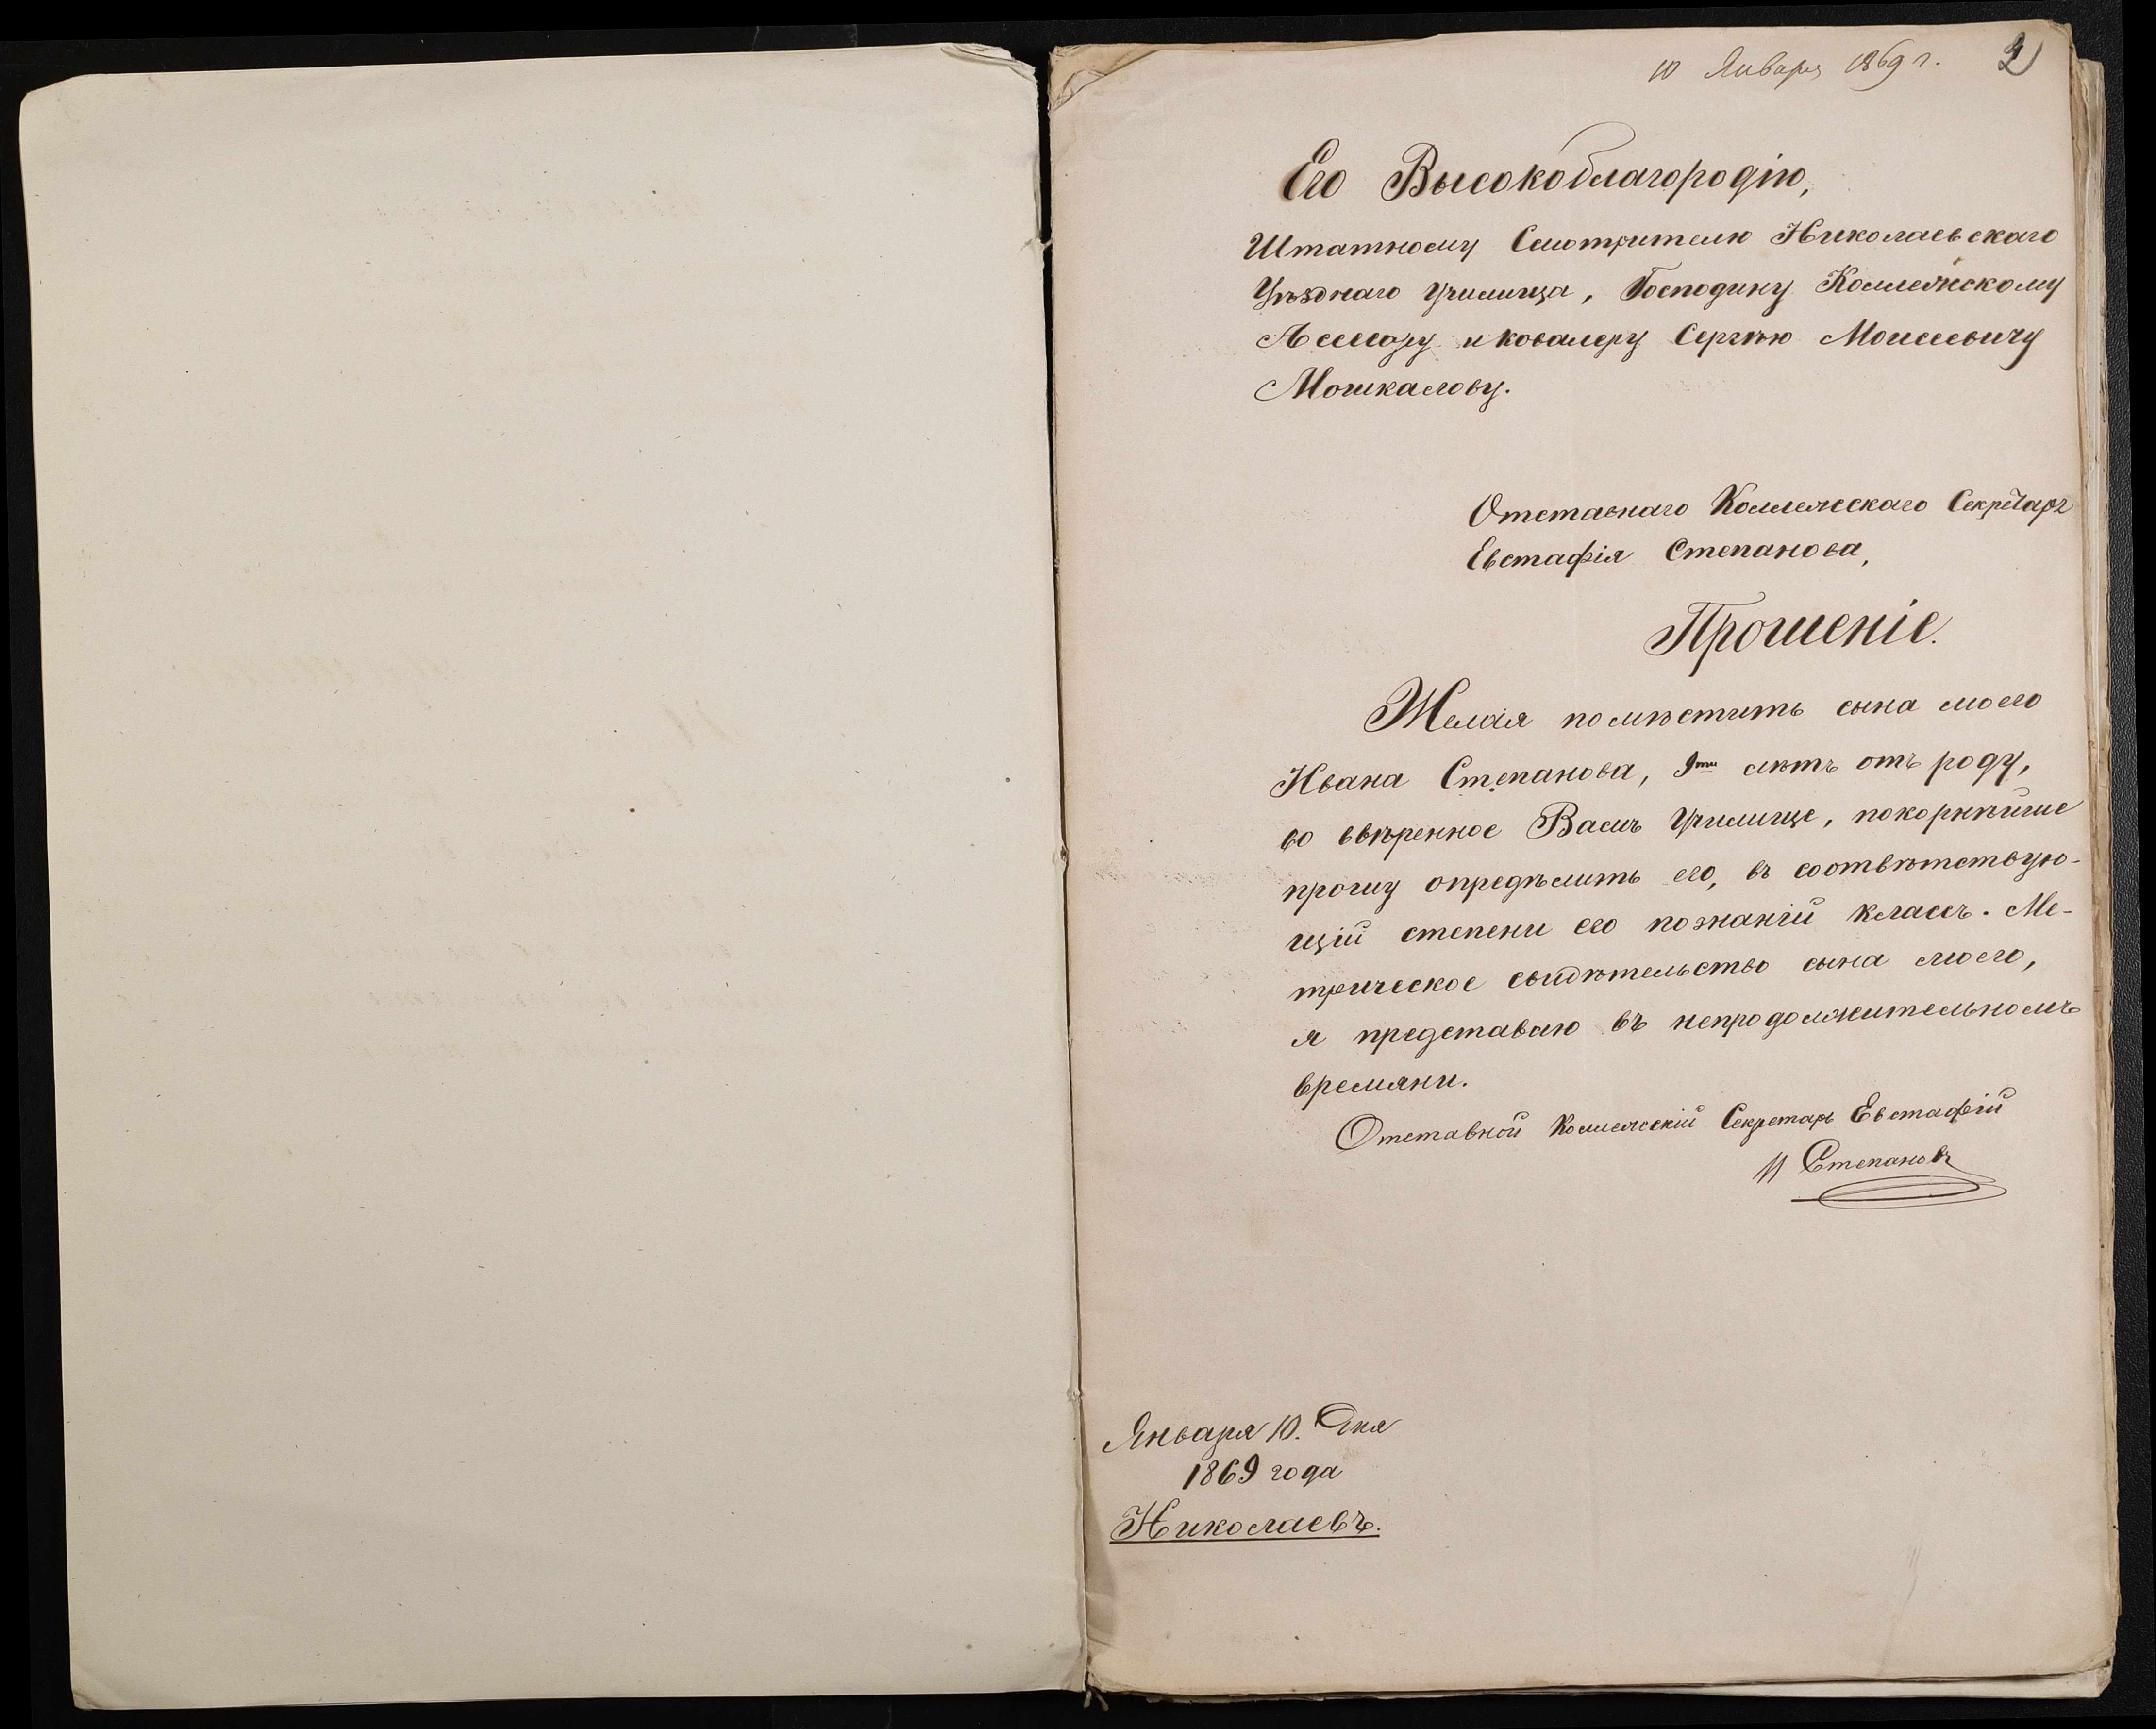 10 Января 1869 г. 2
Его Высокоблагородію,
Штатному Смотрителю Николаевскаго
Уѣзднаго Училища, Господину Коллежскому
Ассесору и ковалеру Сергѣю Моисеевичу
Мошкалову.
Отставнаго Коллежскаго Секретаря
Евстафія Степанова,
Прошеніе.
Желая помѣстить сына моего
Ивана Степанова, 9ти лѣтъ отъ роду,
во ввѣренное Вамъ Училище, покорнѣйше
прошу опредѣлить его, въ соотвѣтствую-
щій степени его познаній классъ. Ме-
трическое свидѣтельство сына моего,
я представлю въ непродолжительномъ
времяни.
Отставной Коллежскій Секретарь Евстафій
Степановъ
Января 10. Дня
1869 года
Николаевъ.